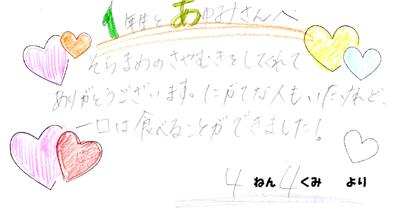 1年生とあゆみさんへ
そらまめのさやむきをしてくれて
ありがとうございます。にがてな人もいたけれど、
一口は食べることができました!
4 ねん 4 くみ より